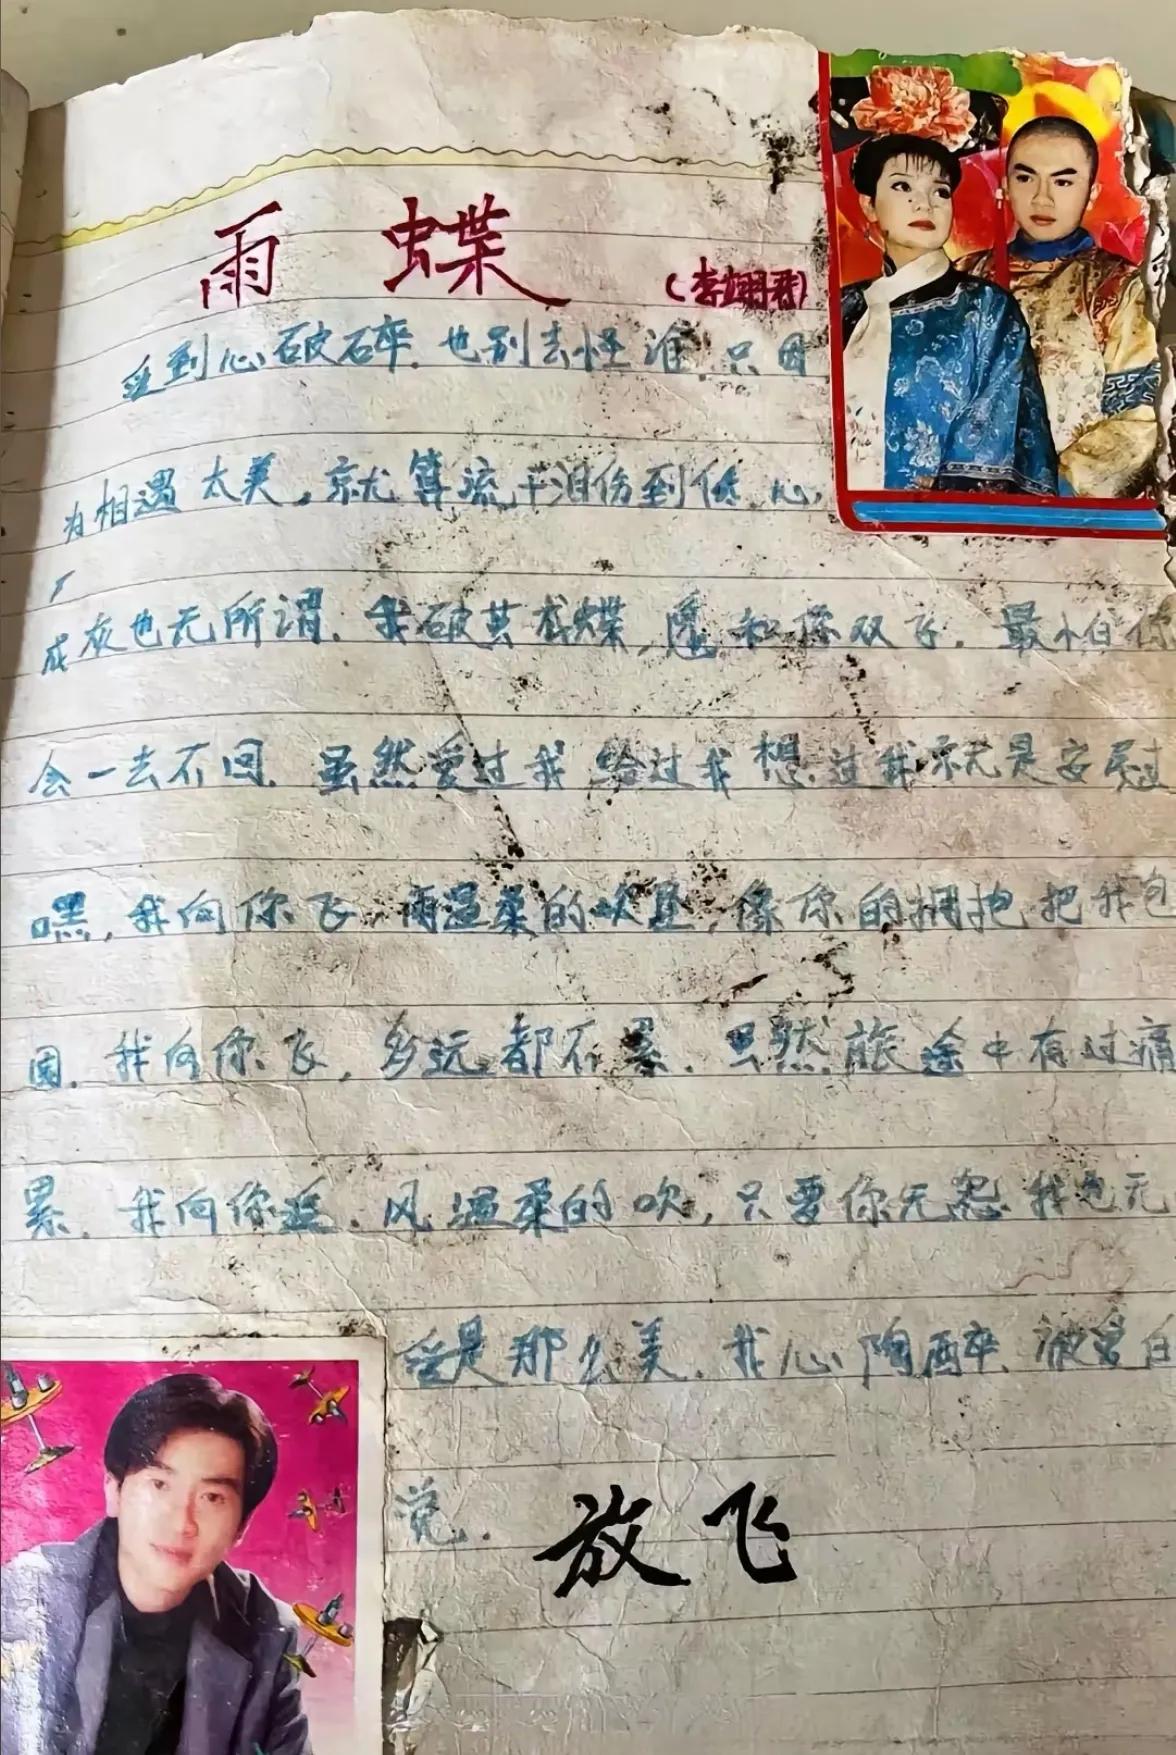 雨 蝶 (李翊君)
爱到心破碎.也别去怪谁.只因
为相遇太美.就算流干泪伤到低.心
成灰也无所谓.我破茧成蝶,愿和你双飞.最怕你
会一去不回.虽然爱过我给过我想过我就是安慰过
嘿,我向你飞,雨温柔的坠,像你的拥抱把我包
围.我向你飞,多远都不累.虽然旅途中有过痛
累.我向你追.风温柔的吹,只要你无怨我也无
爱是那么美.我心陶醉.被
说.
放飞